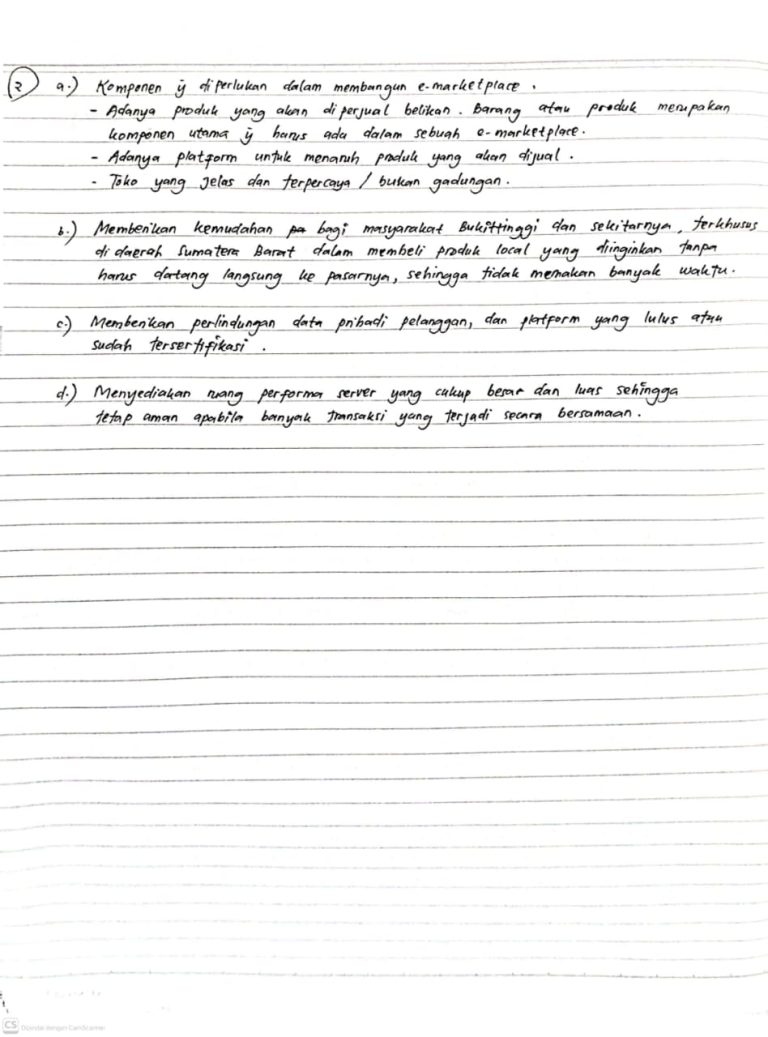 2 a.) Komponen ÿ diperlukan dalam membangun e-marketplace.
- Adanya produk yang akan diperjual belikan. Barang atau produk merupakan
komponen utama ÿ harus ada dalam sebuah e-marketplace.
- Adanya platform untuk menaruh produk yang akan dijual.
- Toko yang jelas dan terpercaya / bukan gadungan.
b.) Memberikan kemudahan bagi masyarakat Bukittinggi dan sekitarnya, terkhusus
di daerah Sumatera Barat dalam membeli produk local yang diinginkan tanpa
harus datang langsung ke pasarnya, sehingga tidak memakan banyak waktu.
c.) Memberikan perlindungan data pribadi pelanggan, dan platform yang lulus atau
sudah tersertifikasi.
d.) Menyediakan ruang performa server yang cukup besar dan luas sehingga
tetap aman apabila banyak transaksi yang terjadi secara bersamaan.
CS Dipindai dengan CamScanner